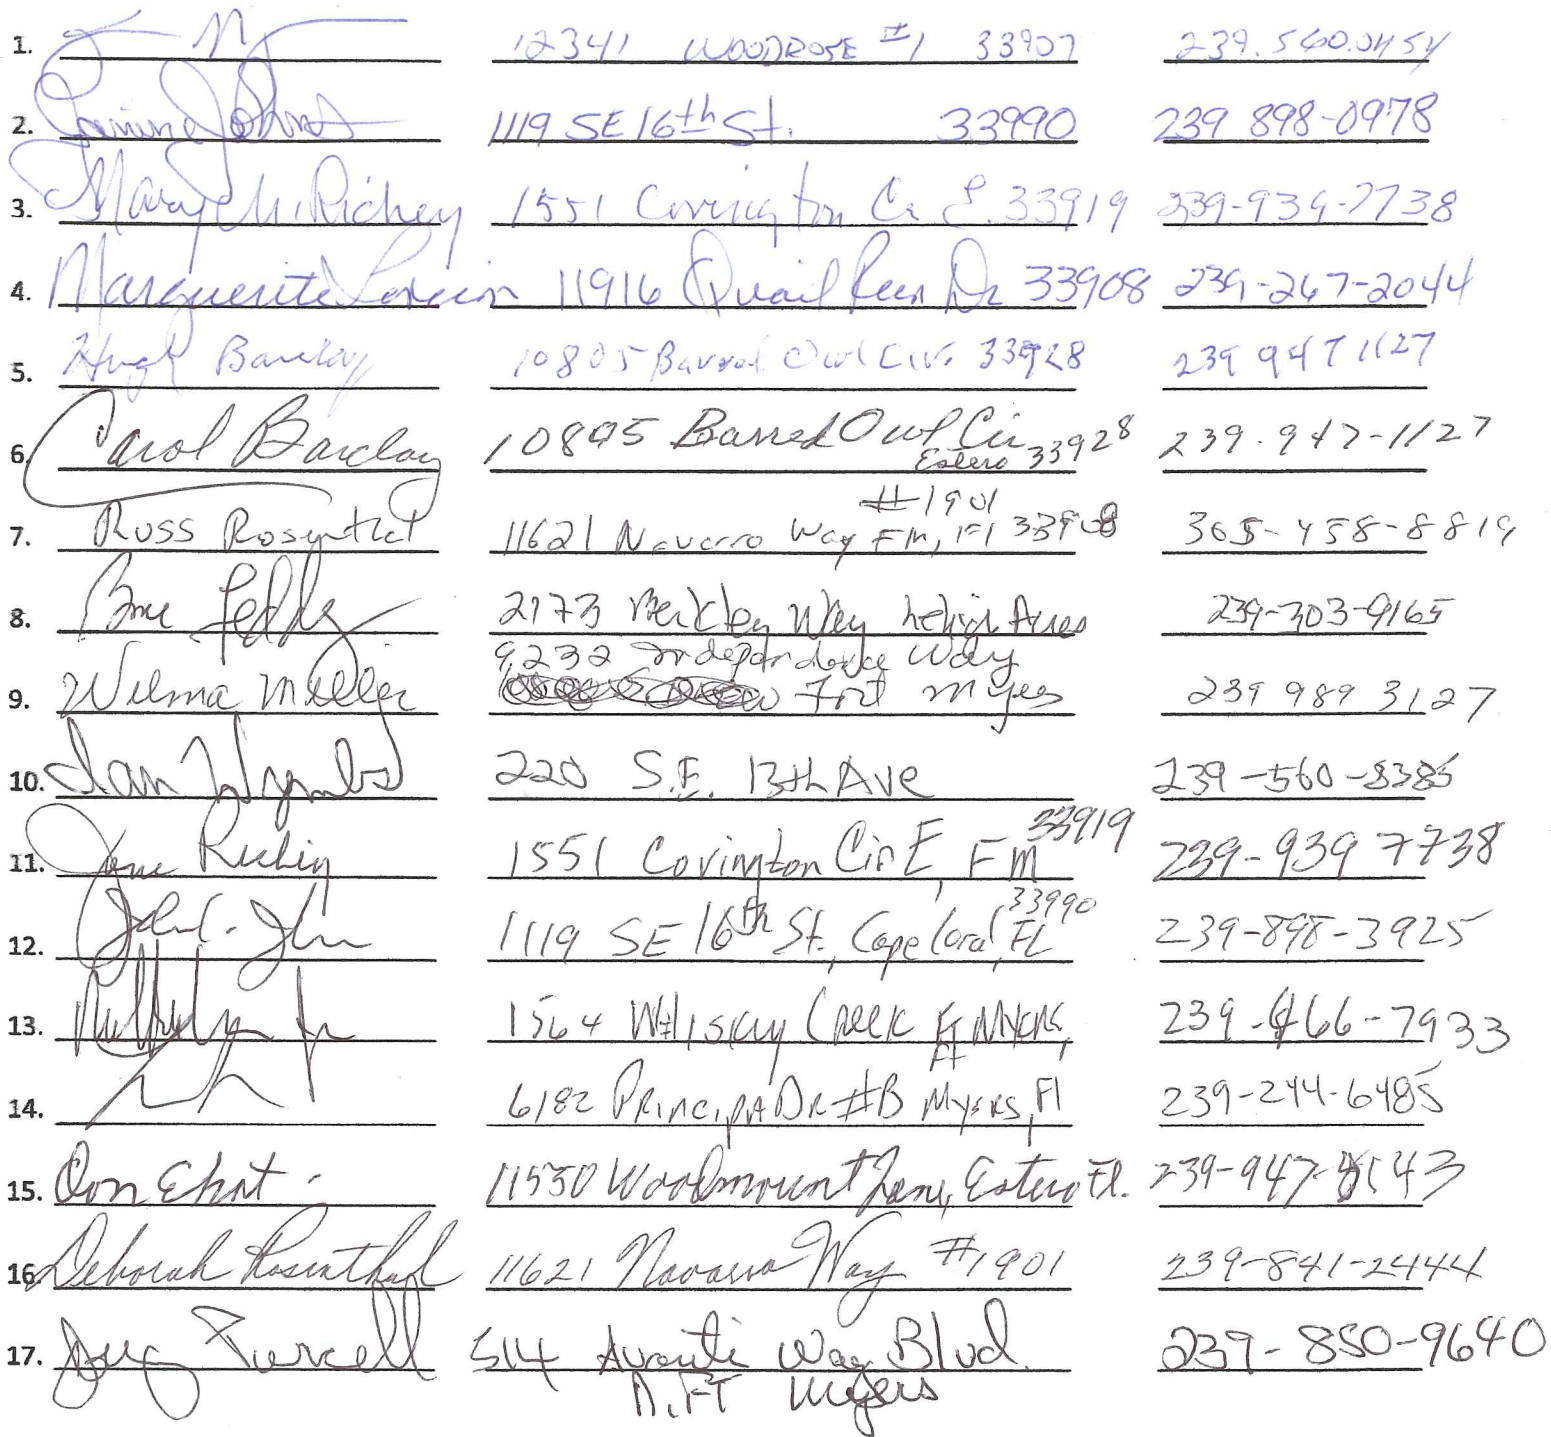 1. 12341 WOODROSE #1 33907 239.560.0454
2. 1119 SE 16th St. 33990 239 898-0978
3. Mary M. Richey 1551 Covington Cr E. 33919 239-939-7738
4. Marguerite 11916 Quail Run Dr 33908 239-267-2044
5. Hugh Barclay 10805 Barred Owl Cir. 33928 239 947 1127
6. Carol Barclay 10805 Barred Owl Cir 239.947-1127
Estero 33928
#1901
7. Russ Rosenthal 11621 Navarro Way FM, Fl 33908 305-458-8819
8. 2173 Berkley Way Lehigh Acres 239-303-9165
9232 Independence Way
9. Wilma Miller Fort Myers 239 989 3127
10. 220 S.E. 13th Ave 239-560-8385
33919
11. 1551 Covington Cir E, FM 239-939 7738
33990
12. 1119 SE 16th St., Cape Coral, FL 239-898-3925
13. 1564 Whiskey Creek Ft Myers, 239-466-7933
Ft
14. 6182 Principia Dr #B Myers, Fl 239-244-6485
15. Don Ehat. 11550 Woodmount Lane, Estero Fl. 239-947-4143
16. Deborah Rosenthal 11621 Navarro Way #1901 239-841-2444
17. Doug Purcell 514 Avanti Way Blvd. 239-850-9640
N. FT Myers